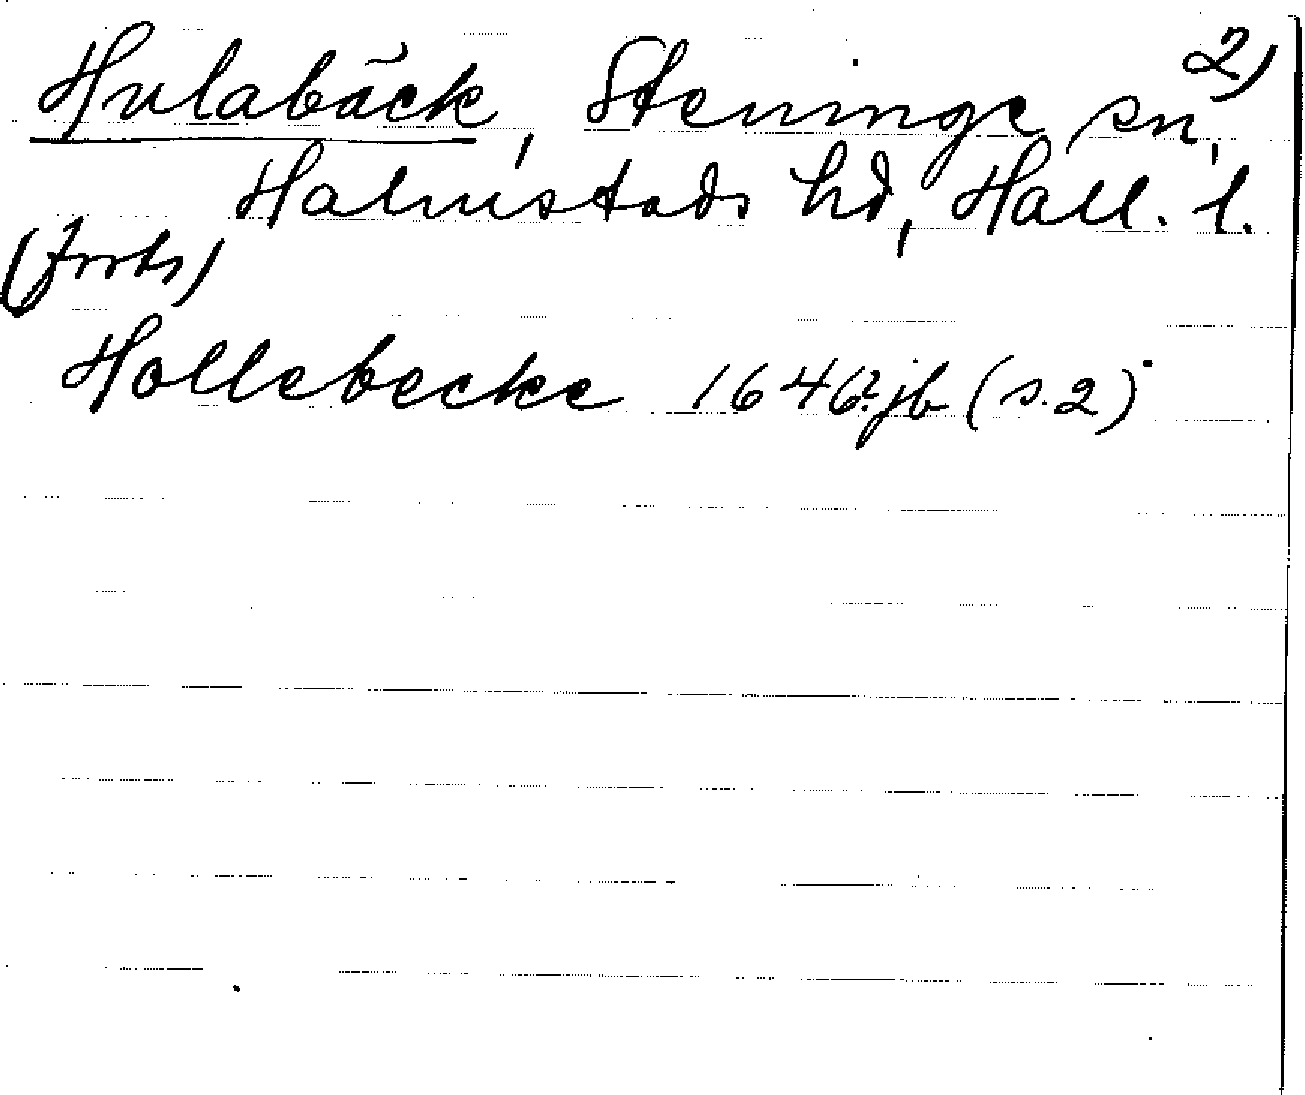 Hulabäck, Steninge sn, 2)
Halmstads hd, Hall. l.
(forts)
Hollebecke 1646? jb (s. 2)